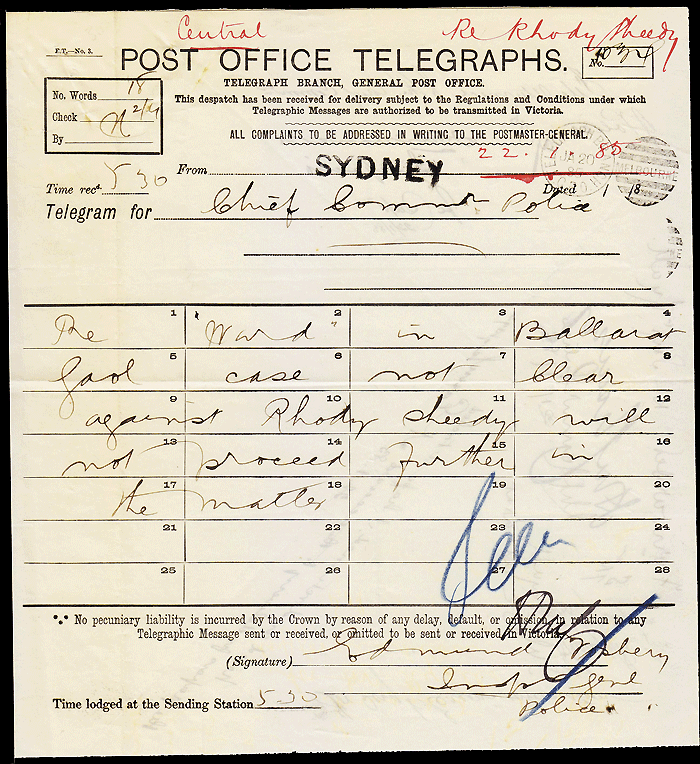 Central Re Rhody Sheedy
F.T.—No. 3.
POST OFFICE TELEGRAPHS.
No.
TELEGRAPH BRANCH, GENERAL POST OFFICE.
No. Words 18
Check
By
This despatch has been received for delivery subject to the Regulations and Conditions under which
Telegraphic Messages are authorized to be transmitted in Victoria.
ALL COMPLAINTS TO BE ADDRESSED IN WRITING TO THE POSTMASTER-GENERAL.
22. 1 85
From SYDNEY
Time recd. 5 30 Dated 1 18
Telegram for Chief Commr Police
1 2 3 4
Re "Ward" in Ballarat
5 6 7 8
Gaol case not Clear
9 10 11 12
against Rhody Sheedy will
13 14 15 16
not proceed further in
17 18 19 20
the matter
21 22 23 24
25 26 27 28
Seen
No pecuniary liability is incurred by the Crown by reason of any delay, default, or omission, in relation to any
Telegraphic Message sent or received, or omitted to be sent or received, in Victoria.
(Signature) Edmund Fosbery
Insp Genl
Time lodged at the Sending Station 5.30
Police